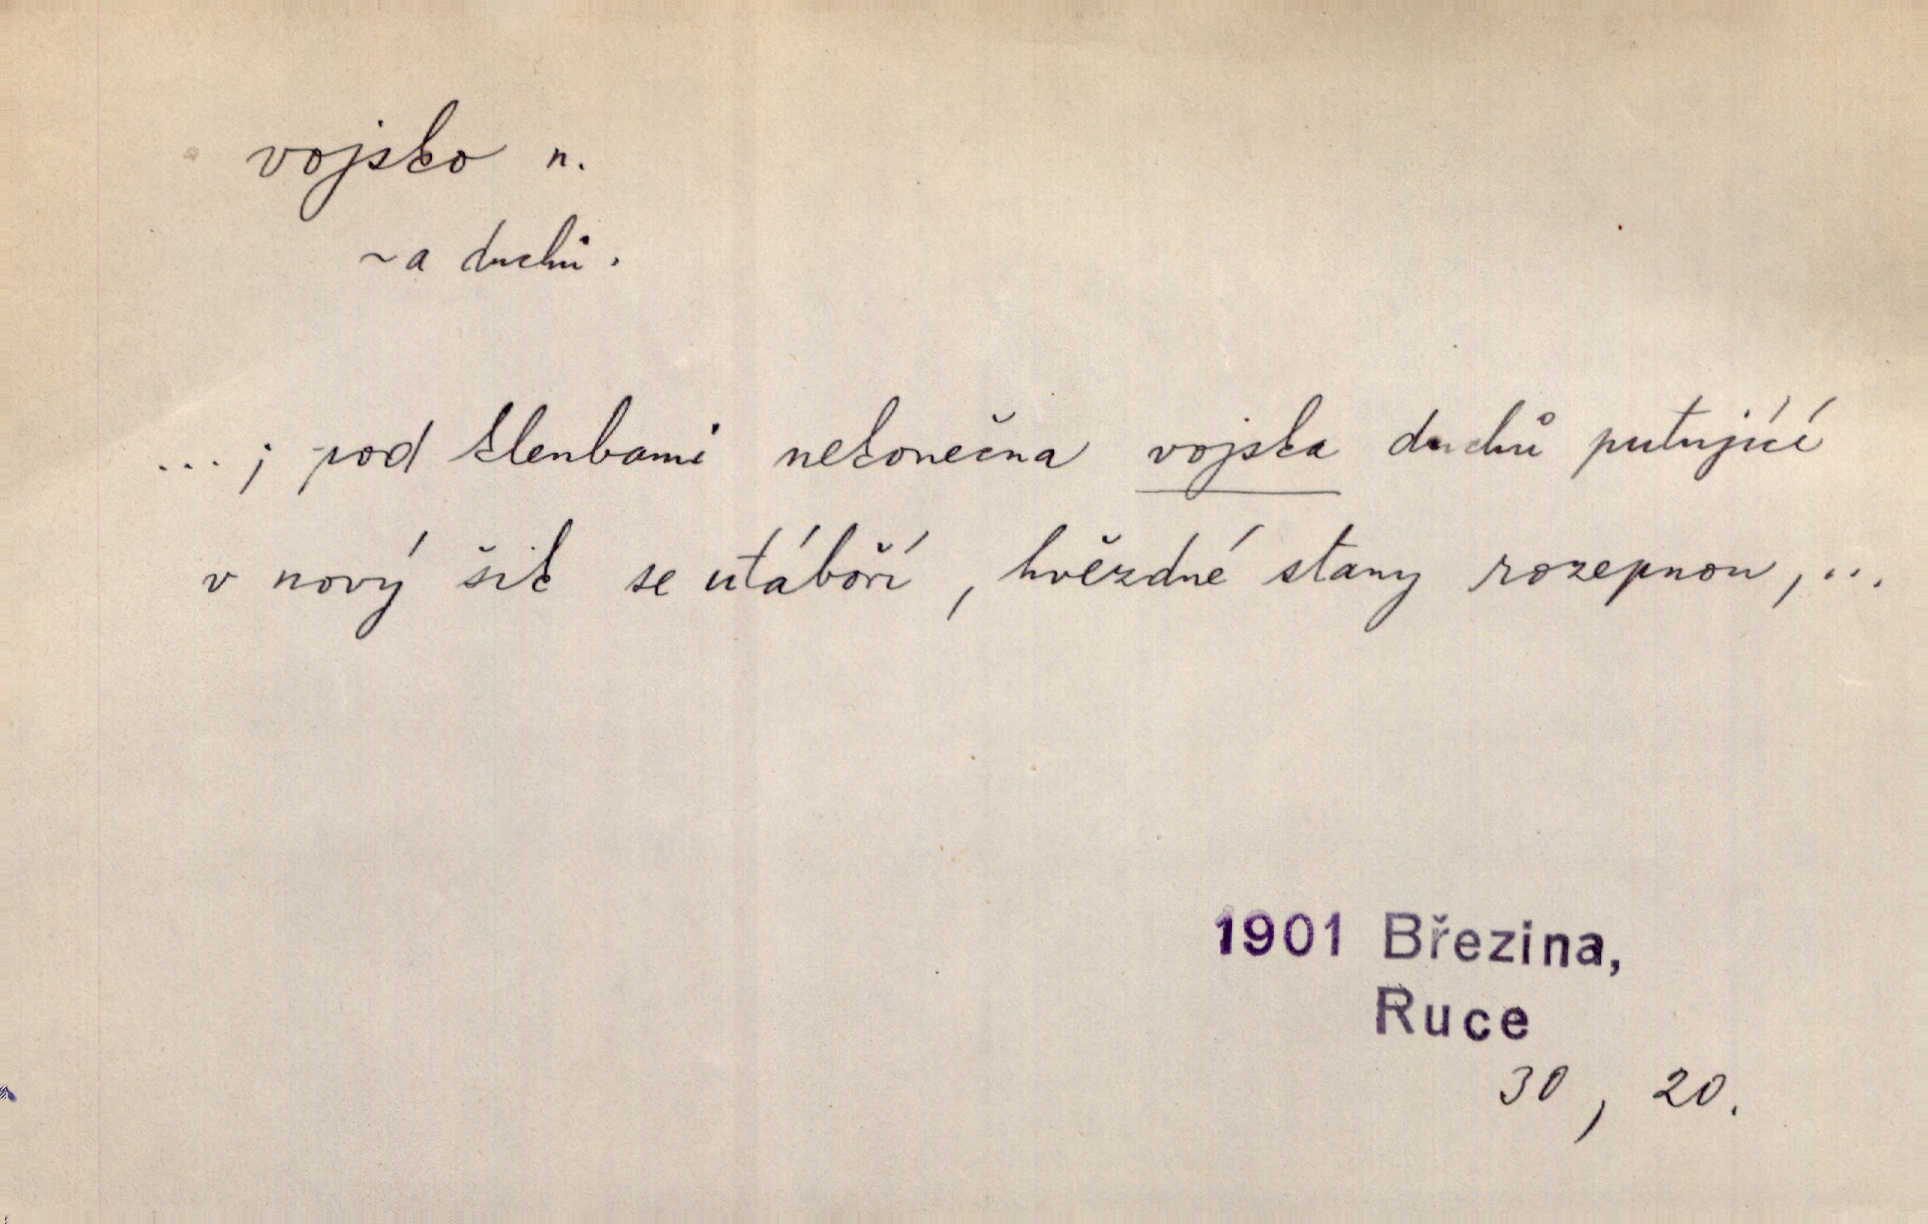 vojsko n.
~a duchů.
...; pod klenbami nekonečna vojska duchů putující
v nový šik se utáboří, hvězdné stany rozepnou, ...
1901 Březina,
Ruce
30, 20.